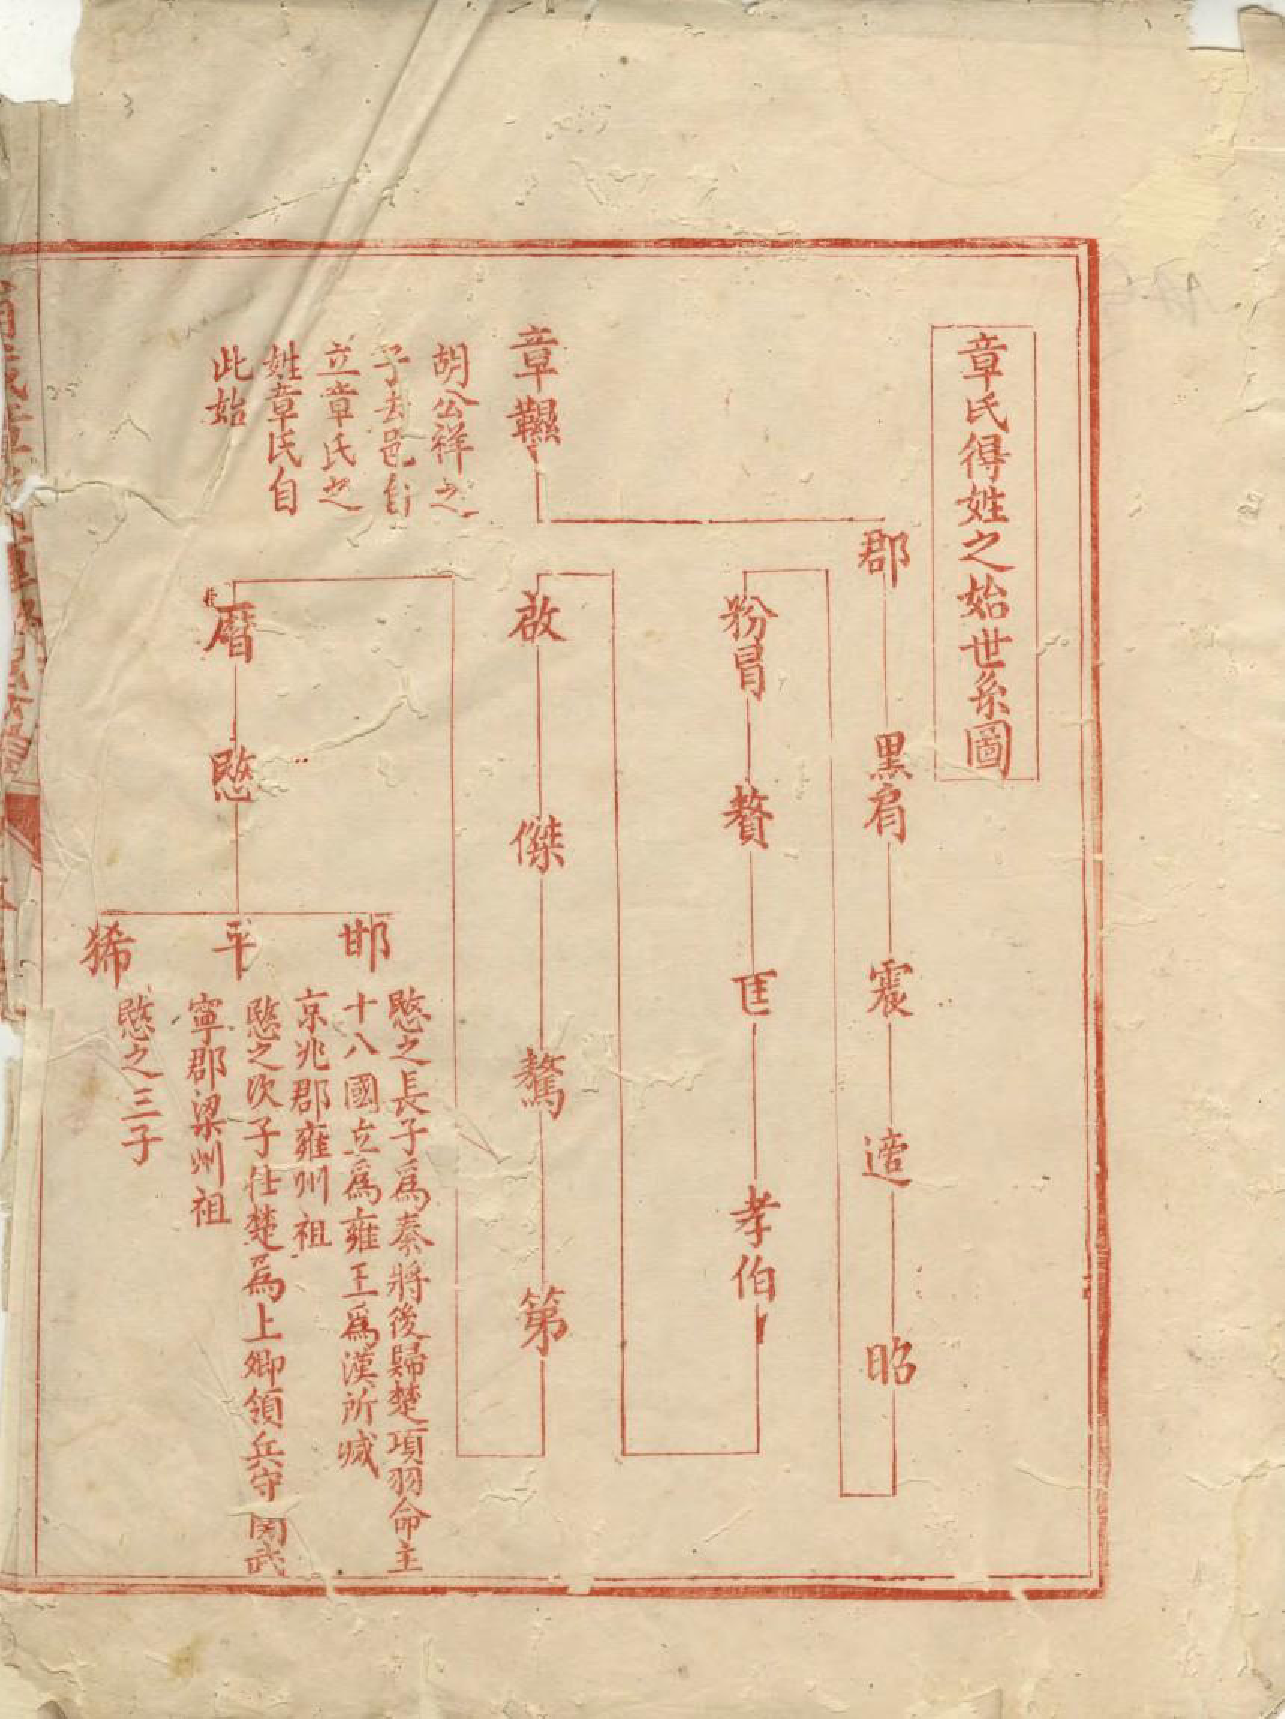 章氏得姓之始世系圖
章韅
胡公祥之
子去邑自
立章氏之
姓章氏自
此始
郡
黑肩
震
昭
粉冒
贅
匡
孝伯
啟
傑
驁
第
曆
愍
邯
愍之長子爲秦將後歸楚項羽命主
十八國立爲雍王爲漢所滅
京兆郡雍州祖
平
愍之次子仕楚爲上卿領兵守関武
寧郡梁州祖
狶
愍之三子